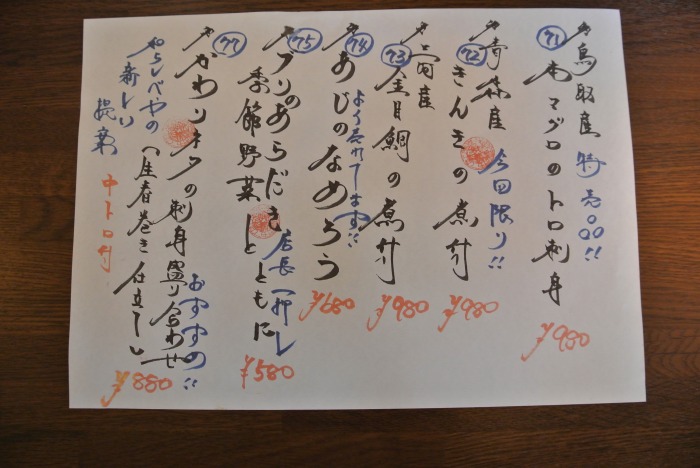 71
鳥取産 特売〇〇!!
本マグロのトロ刺身
¥980
72
青森産 今回限り!!
きんきの煮付
¥980
73
金目鯛の煮付
¥980
74
よく売れてます!!
あじのなめろう
¥680
75
ブリのあらだき 店長一押し
季節野菜とともに
¥580
77
かわりネタの刺身盛り合わせ おすすめ!!
「生春巻き仕立て」
¥880
わらしべやの
新しい
提案
中トロ付